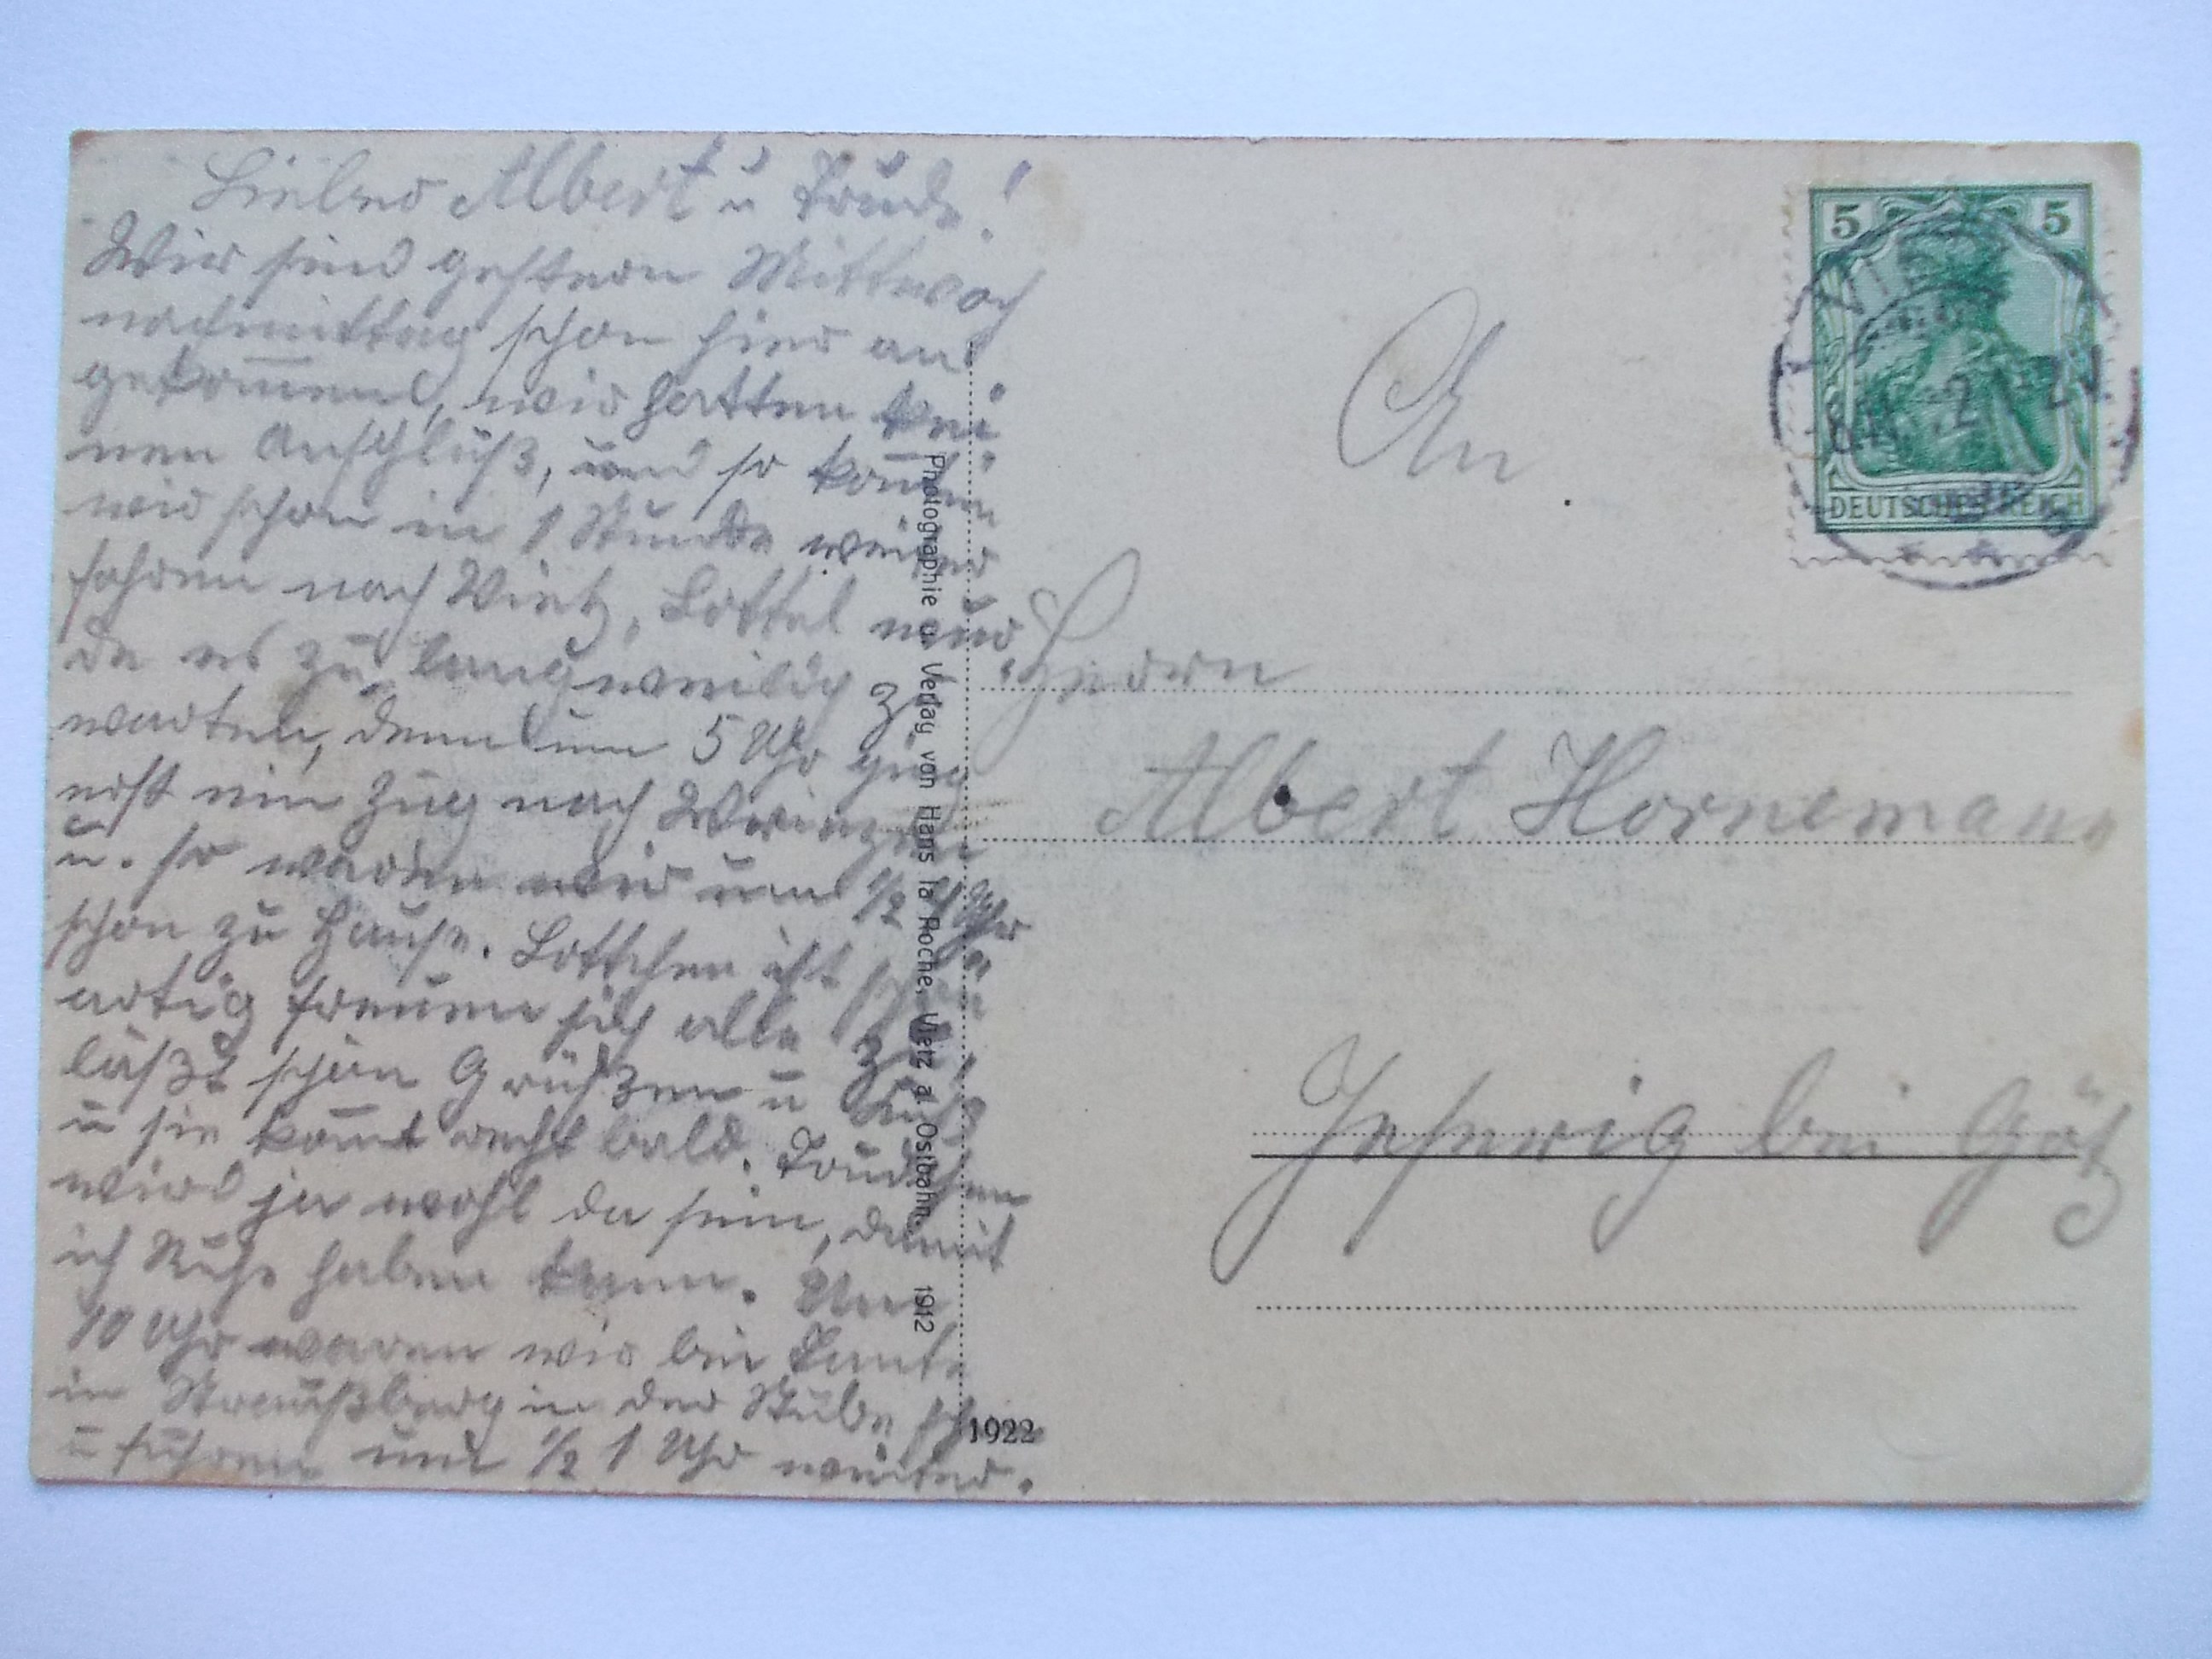 Lieber Albert u Trude!
Wir sind gestern Mittwoch
nachmittag schon hier an
gekommen, wir hatten kei
nen Anschluß, und so konnten
wir schon in 1 Stunde weiter
fahren nach Vietz, Lottel wur
de es zu langweilig zu
warten, denn um 5 Uhr ging
erst ein Zug nach Wriezen
u. so waren wir um 1/2 4 Uhr
schon zu Hause. Lottchen ist sehr
artig freuen sich alle zu,
läßt schön Grüßen u Kuß
u sie kommt recht bald. Trudchen
wird ja wohl da sein, damit
ich Ruhe haben kann. Um
10 Uhr waren wir bei Tante
in Straußberg in der Stube
u fuhren um 1/2 1 Uhr weiter.
Photographie u. Verlag von Hans la Roche, Vietz a. Ostbahn. 1912
1922
5 5
DEUTSCHES REICH
An
Herrn
Albert Hornemann
Jeserig bei Götz